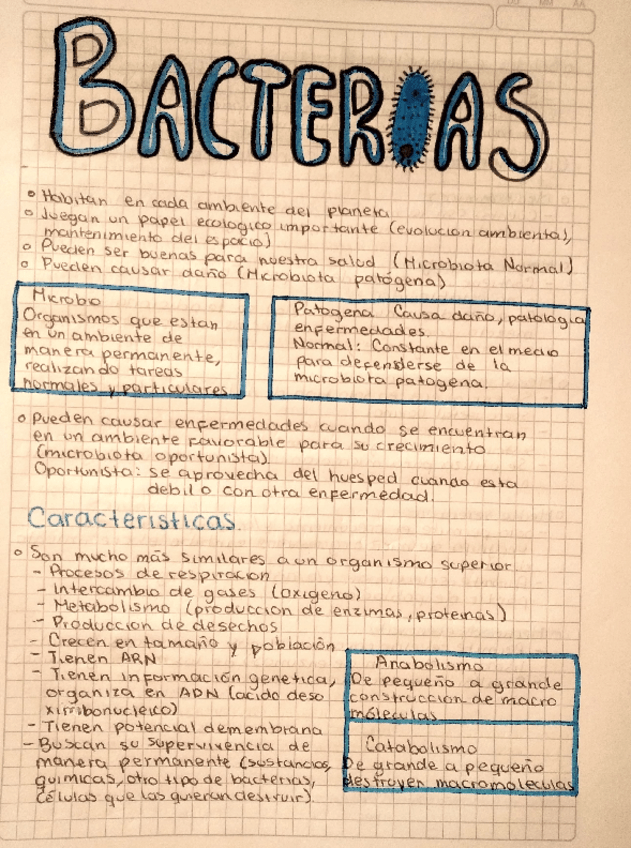 BACTERIAS
DD MM AA
o Habitan en cada ambiente del planeta
o Juegan un papel ecologico importante (evolucion ambiental,
mantenimiento del espacio)
o Pueden ser buenas para nuestra salud (Microbiota Normal)
o Pueden causar daño (Microbiota patógena)
Microbio
Organismos que estan
en un ambiente de
manera permanente,
realizando tareas
normales y particulares
Patogena Causa daño, patologia
enfermedades.
Normal: Constante en el medio
para defenderse de la
microbiota patogena.
o Pueden causar enfermedades cuando se encuentran
en un ambiente favorable para su crecimiento
(microbiota oportunista).
Oportunista: se aprovecha del huesped cuando esta
debil o con otra enfermedad.
Caracteristicas.
o Son mucho más similares a un organismo superior
- Procesos de respiracion
- Intercambio de gases (oxigeno)
- Metabolismo (produccion de enzimas, proteinas)
- Produccion de desechos
- Crecen en tamaño y población
- Tienen ARN
- Tienen información genetica,
organiza en ADN (acido deso
xirribonucleico)
- Tienen potencial de membrana
- Buscan su supervivencia de
manera permanente (sustancias,
quimicas, otro tipo de bacterias,
células que las quieran destruir).
Anabolismo
De pequeño a grande
construcción de macro
móleculas
Catabolismo
De grande a pequeño
destruyen macromoleculas